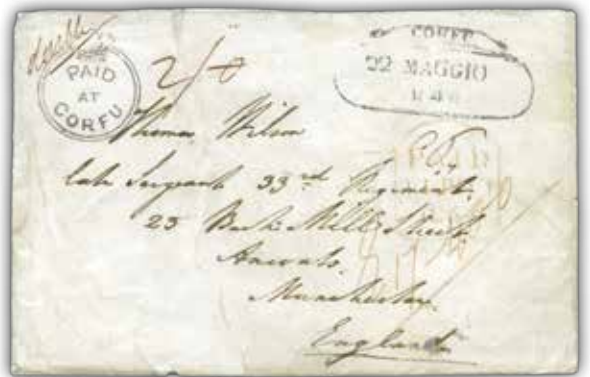 PAID
AT
CORFU
2/-
CORFU
22 MAGGIO
Thomas Wilson
late Sergeant 33rd Regiment
25 Mill Street
Ancoats
Manchester
England